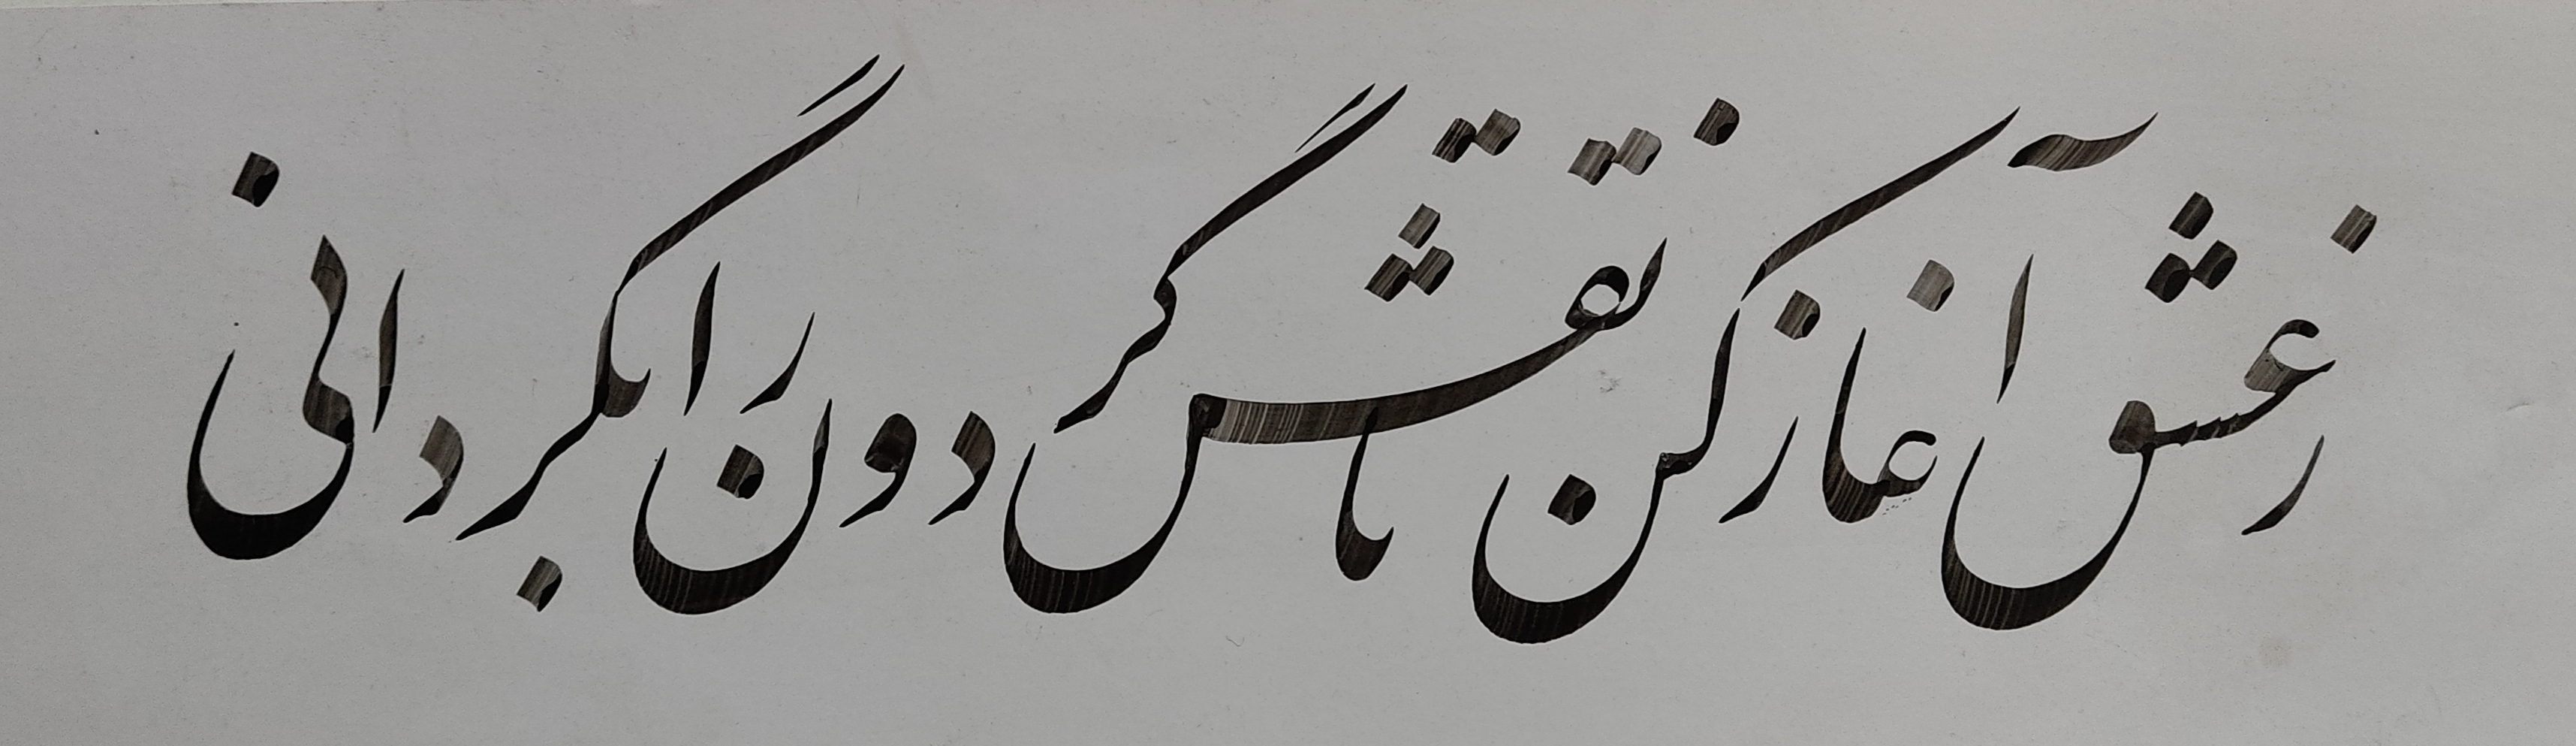 ز عشق آغاز کن تا نقش گردون را بگردانی